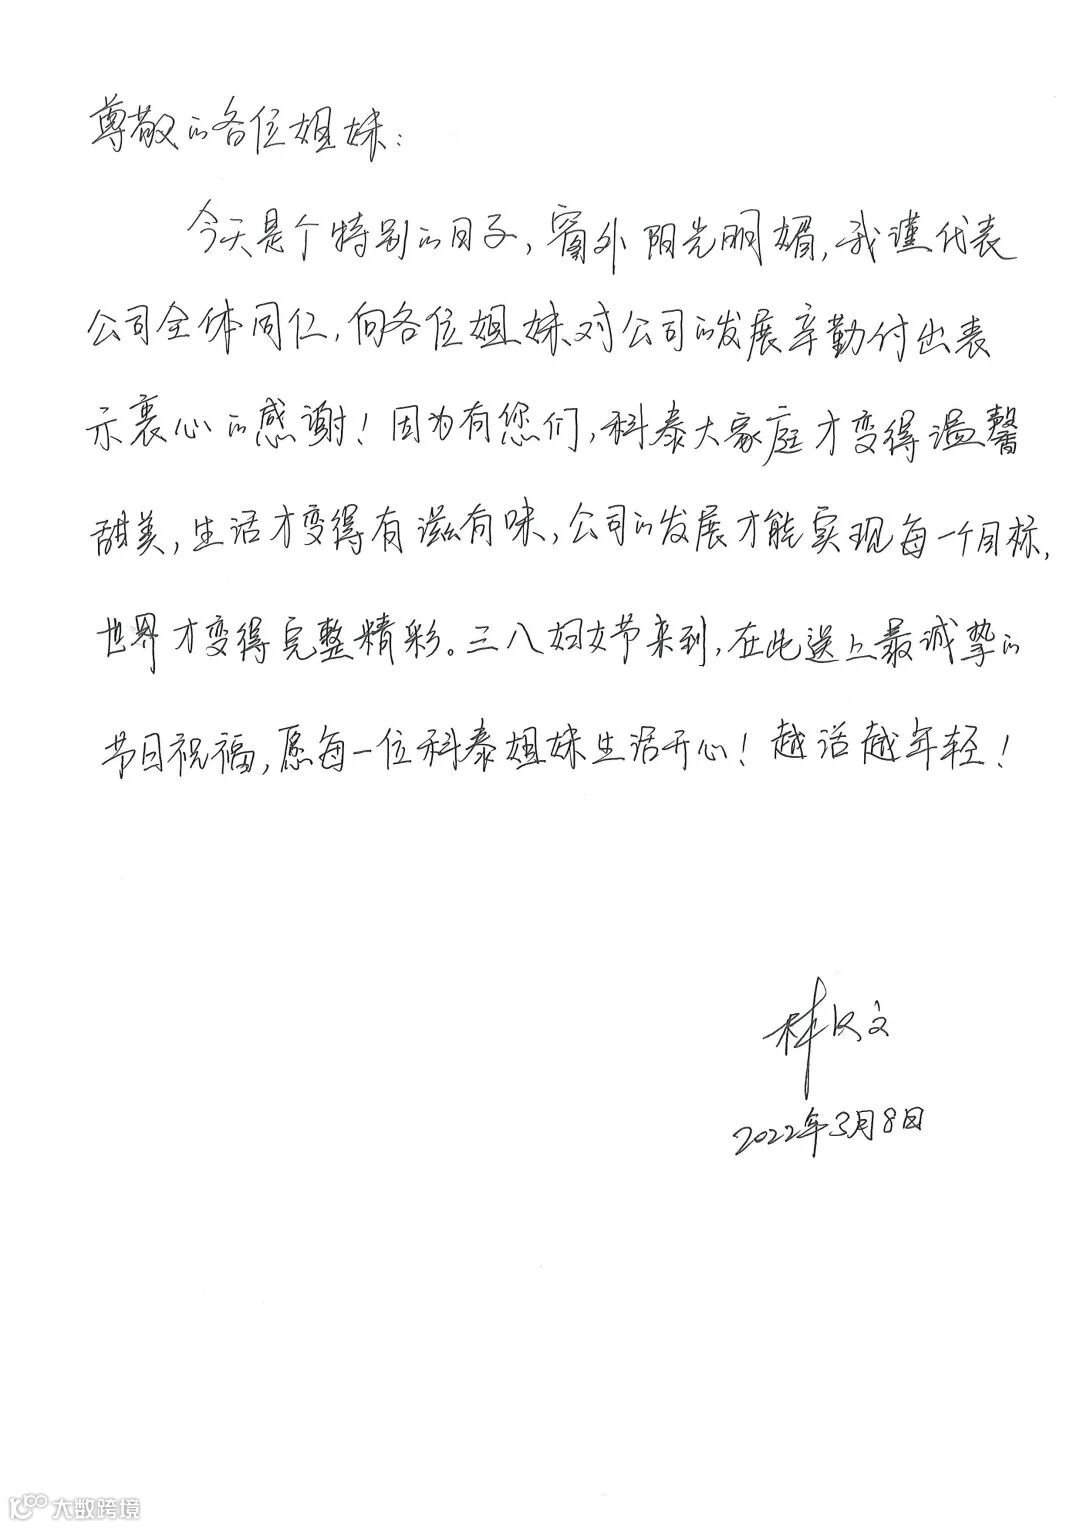 尊敬的各位姐妹：
今天是个特别的日子，窗外阳光明媚，我谨代表
公司全体同仁，向各位姐妹对公司的发展辛勤付出表
示衷心的感谢！因为有您们，科泰大家庭才变得温馨
甜美，生活才变得有滋有味，公司的发展才能实现每一个目标，
世界才变得完整精彩。三八妇女节来到，在此送上最诚挚的
节日祝福，愿每一位科泰姐妹生活开心！越活越年轻！
2022年3月8日
大数跨境